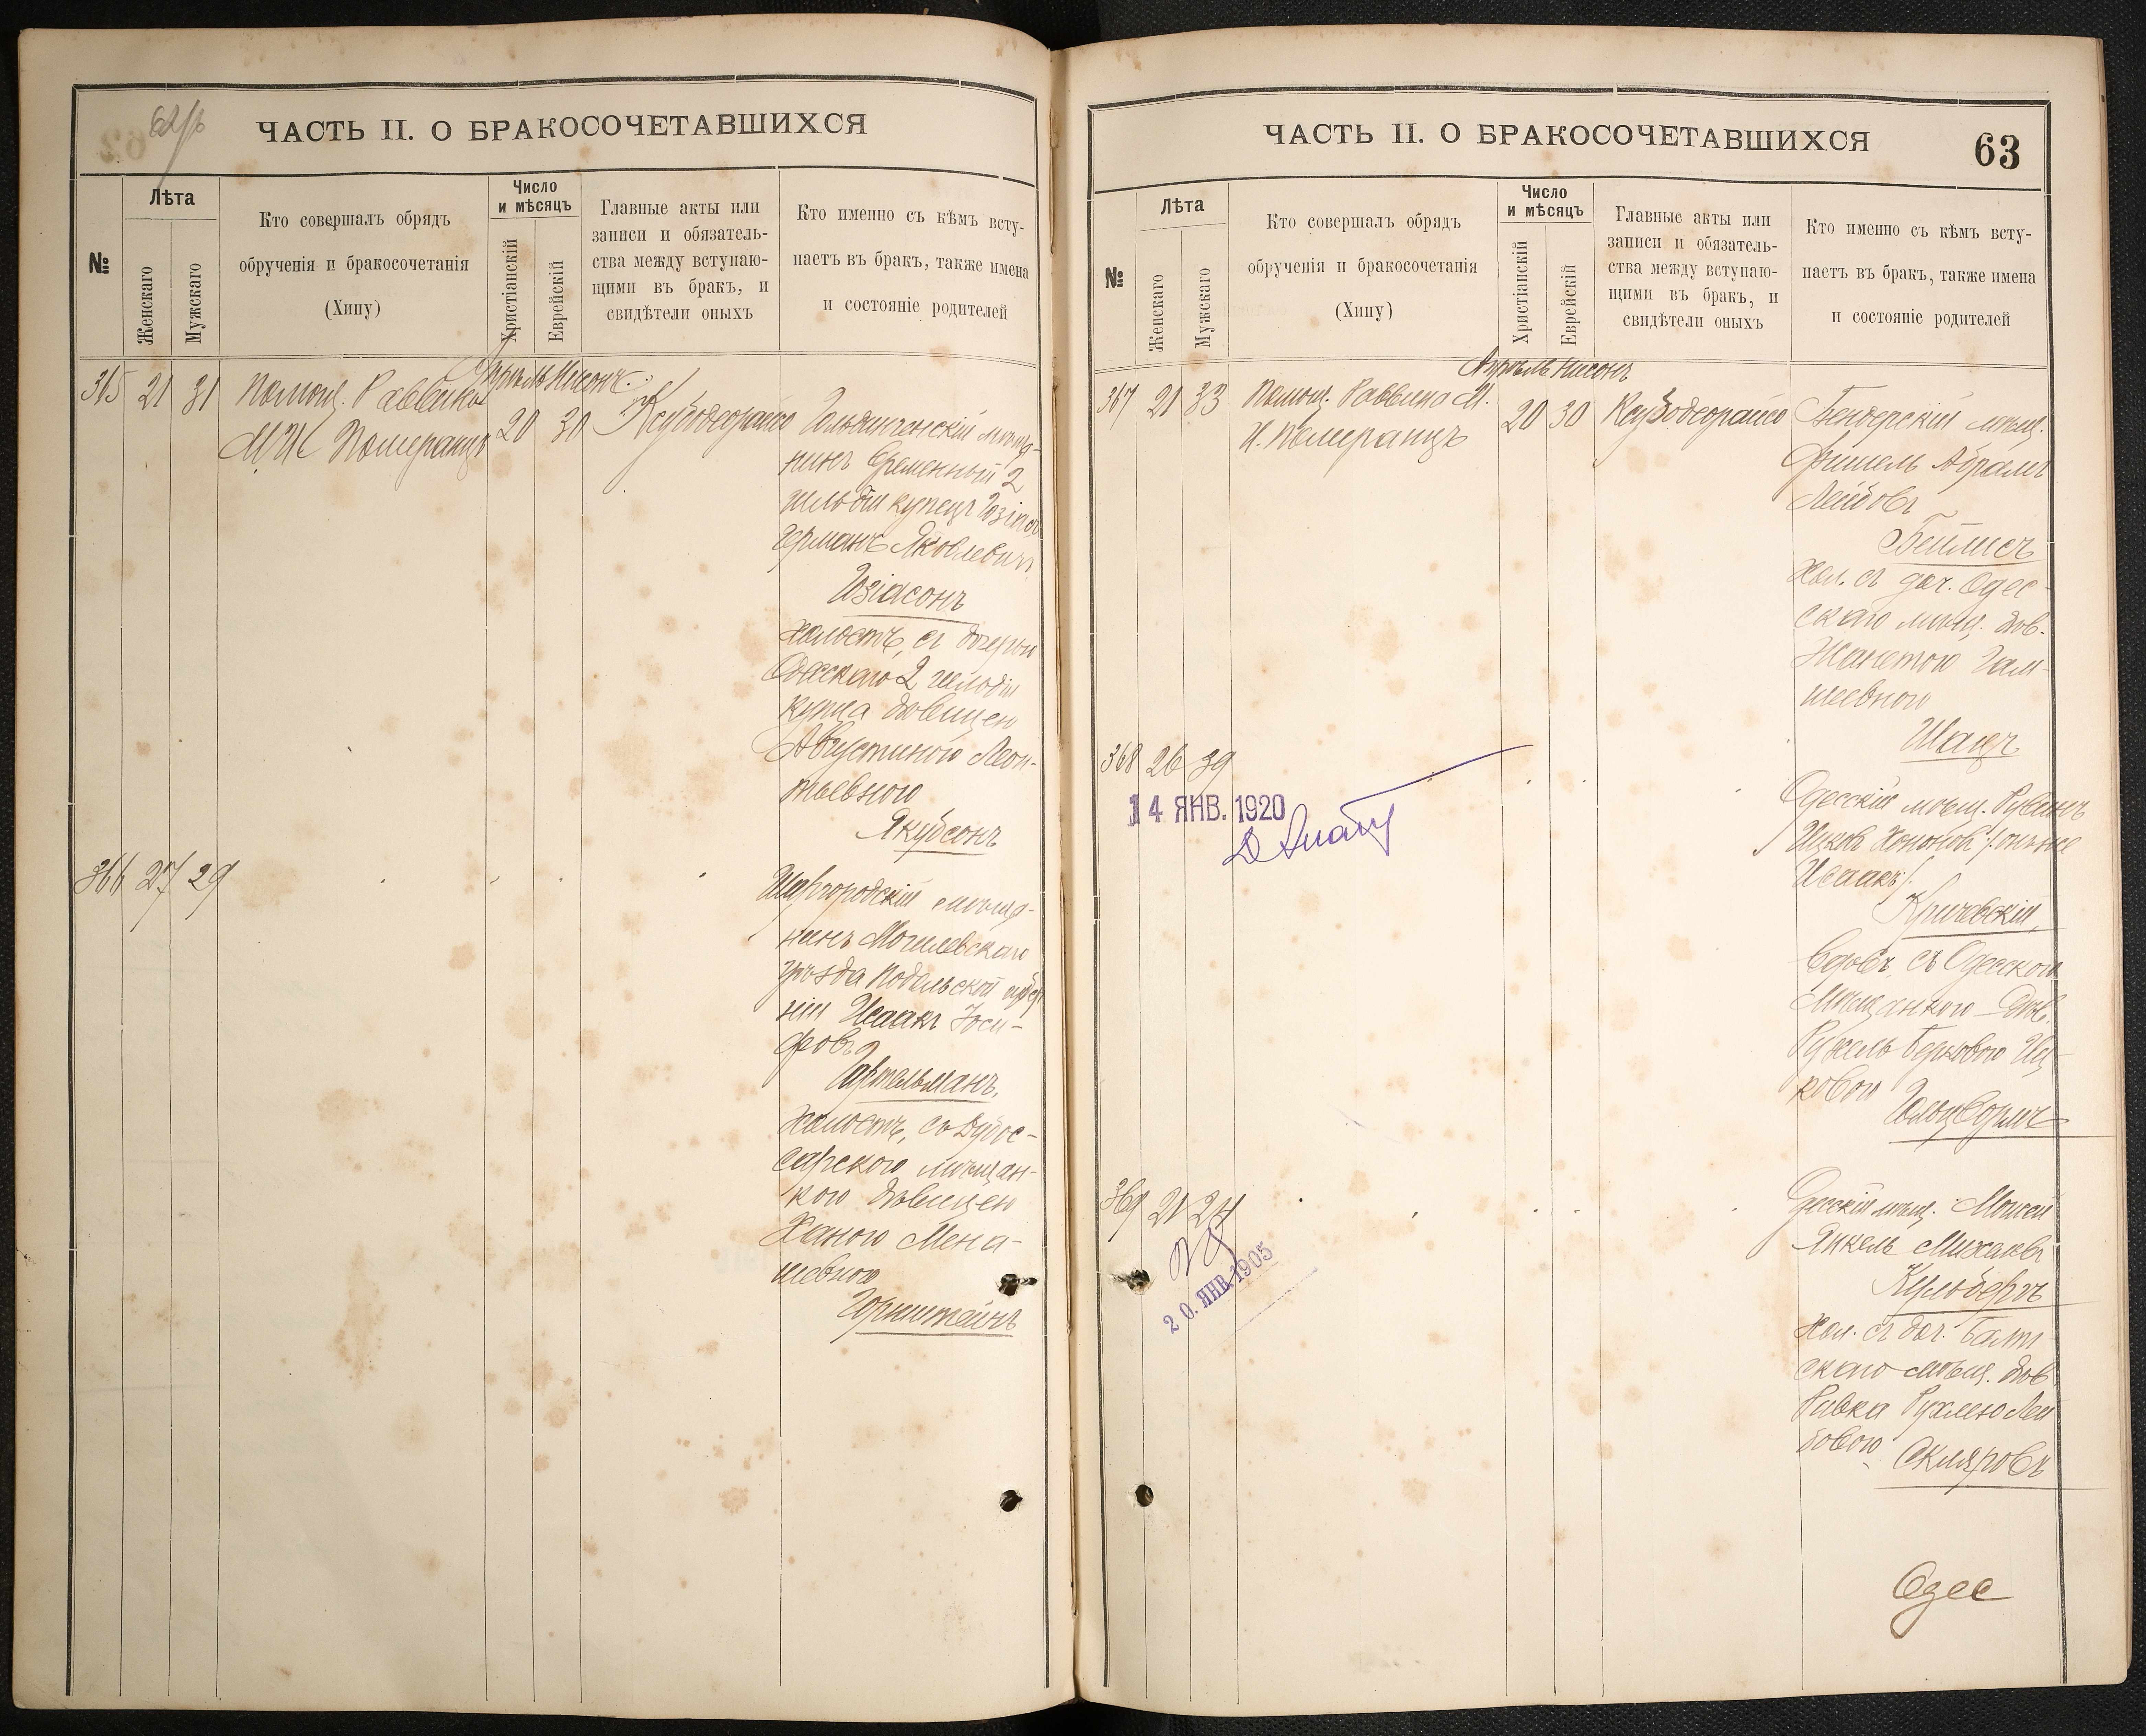 62/б
ЧАСТЬ II. О БРАКОСОЧЕТАВШИХСЯ
№
Лѣта
Женскаго
Мужскаго
Кто совершалъ обрядъ
обрученія и бракосочетанія
(Хипу)
Число
и мѣсяцъ
Христіанскій
Еврейскій
Главные акты или
записи и обязатель-
ства между вступаю-
щими въ бракъ, и
свидѣтели оныхъ
Кто именно съ кѣмъ всту-
паетъ въ бракъ, также имена
и состояніе родителей
Апрѣль Нисонъ
365 21 31 Помощ. Раввина
М. И. Померанцъ 20 30
Гольдингенскій мѣща-
нинъ временный 2
гильдіи купецъ
Германъ Яковлевичъ
Іозіасонъ
холостъ, съ дочерью
Одесскаго 2 гильдіи
купца дѣвицею
Августиною Леон-
тьевною
Якубсонъ
366 27 29
Шаргородскій мѣща-
нинъ Могилевскаго
уѣзда Подольской губер
ніи Исаакъ Іоси-
фовъ
Гертельманъ,
холостъ, съ Дубос-
сарскою мѣщан-
кою дѣвицею
Ханою Мена-
шевною
Горнштейнъ
ЧАСТЬ II. О БРАКОСОЧЕТАВШИХСЯ
63
№
Лѣта
Женскаго
Мужскаго
Кто совершалъ обрядъ
обрученія и бракосочетанія
(Хипу)
Число
и мѣсяцъ
Христіанскій
Еврейскій
Главные акты или
записи и обязатель-
ства между вступаю-
щими въ бракъ, и
свидѣтели оныхъ
Кто именно съ кѣмъ всту-
паетъ въ бракъ, также имена
и состояніе родителей
Апрѣль Нисонъ
367 21 33 Помощ. Раввина М.
И. Померанцъ 20 30
Бендерскій мѣщ.
Фишель Абрамъ
Лейбовъ
Бейлисъ
Хол. съ доч. Одес-
скаго мѣщ. дѣв.
Жанетою Гам-
шевною
Шацъ
368 26 39
14 ЯНВ. 1920
Одесскій мѣщ. Рувинъ
Ицковъ Хононовъ /:онъ же
Исаакъ:/
Кричевскій,
вдовъ, съ Одесскою
мѣщанкою дѣв.
Рухель Берковою Иц-
ковою
Гольцвормъ
369 21 24
20. ЯНВ. 1905
Одесскій мѣщ. Моисей
Янкель Михелевъ
Кульбергъ
Хол. съ доч. Балт
скаго мѣщ. дѣв
Ривка Рухлею Лей
бовою
Скляровъ
Одес